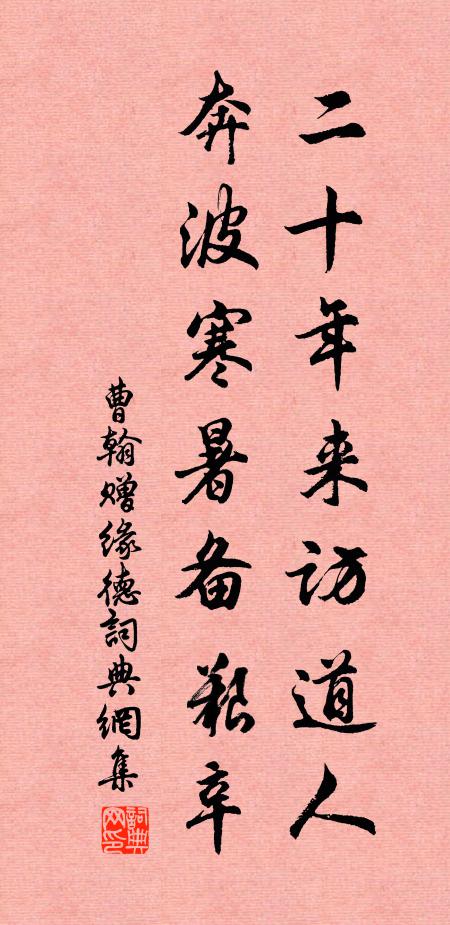 二十年来访道人
奔波寒暑备艰辛
曹翰赠缘德詞典網集
詞典网印